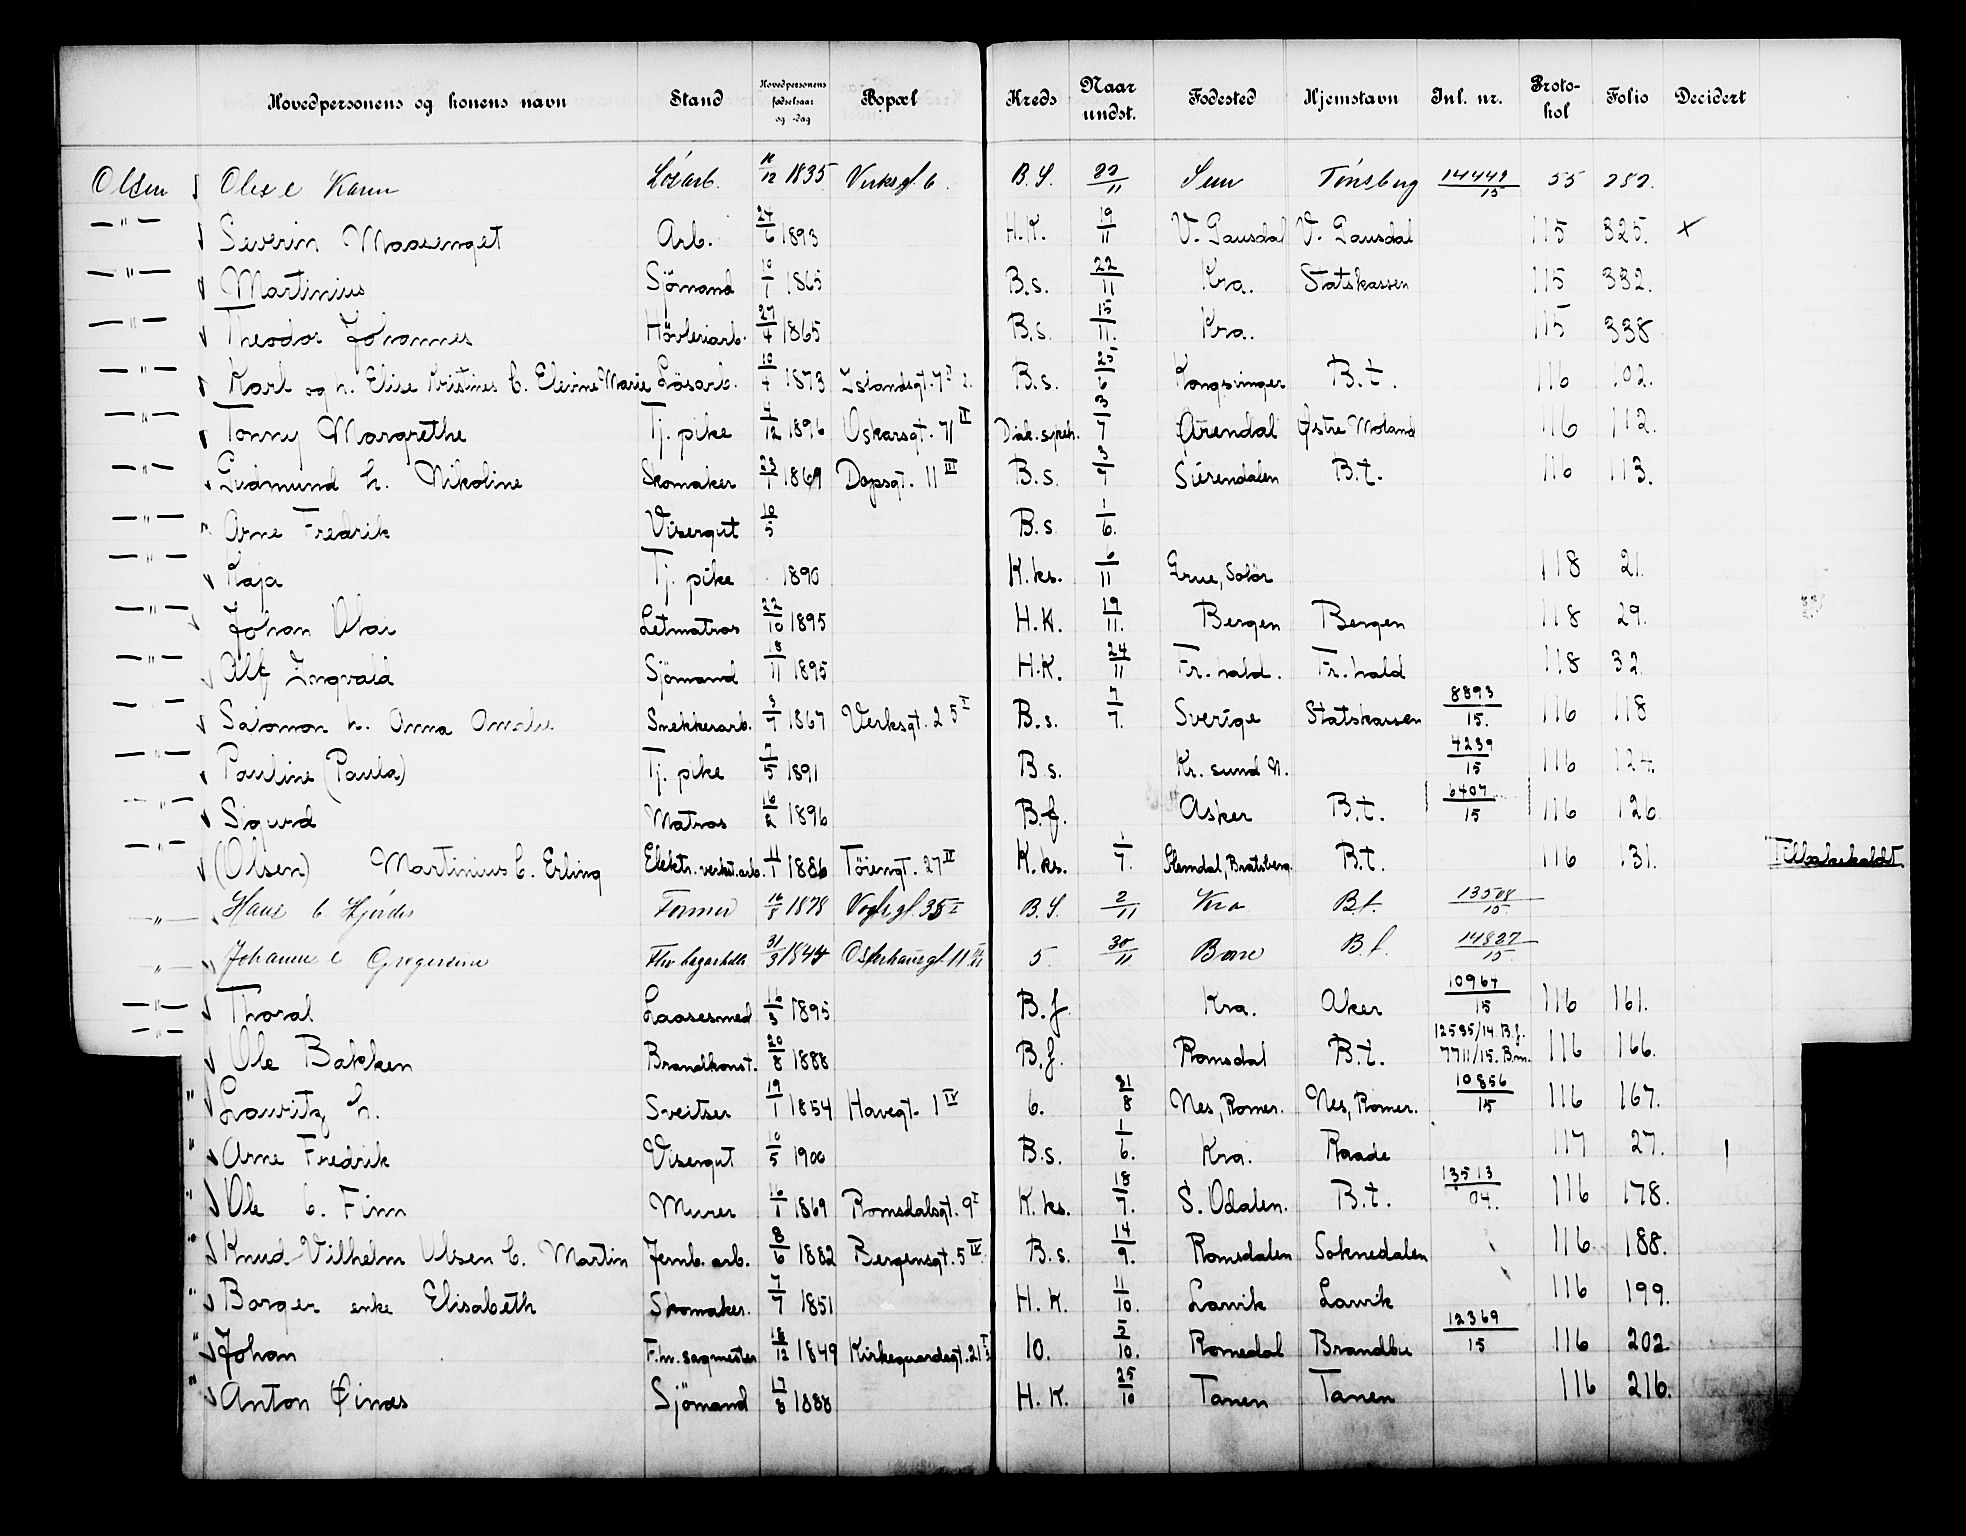 Hovedpersonens og konens navn | Stand | Hovedpersonens fødselsaar og -dag | Bopæl | Kreds | Naar undst. | Fødested | Hjemstavn | Inl. nr. | Protokol | Folio | Decidert
Olsen | Karen | Lösarb. | 12 1835 | Verksgt. 6. | B. S. | 22/11 | Sem | Tönsberg | 14449/15 | 55 | 252.
—"— Severin Maasenget | Arb. | 24/6 1893 | H.K. | 19/11 | V. Gausdal | V. Gausdal | 115 | 325. | x
—"— Martinius | Sjömand | 10/7 1865 | B.s. | 22/11 | Kra. | Statskassen | 115 | 332.
—"— Theodor Johannes | Hövleriarb. | 27/4 1865 | B.s. | 15/11. | Kra. | 115 | 338
—"— Karl og h. Elise Kristines b. Elevine Marie | Lösarb. | 10/4 1873 | Islandsgt. 7 | B.s. | 25/6 | Kongsvinger | B.t. | 116 | 102.
—"— Tonny Margrethe | Tj. pike | 4/12 1896 | Oskarsgt. 71 II | Diak. sykeh. | 3/7 | Arendal | Østre Moland | 116 | 112.
—"— Gudmund h. Nikoline | Skomaker | 23/1 1869 | Dopsgt. 11 III | B.s. | Surendalen | B.t. | 116 | 113.
—"— Arne Fredrik | Visergut | 10/5 | B.s. | 1/6.
—"— Kaja | Tj. pike | 1890 | K.ks. | 6/11 | Grue, Solör | 118 | 21.
—"— Johan Olai | Letmatros | 22/10 1895 | H.K. | 19/11. | Bergen | Bergen | 118 | 29.
—"— Alf Ingvald | Sjömand | 18/11 1895 | H.K. | 24/11 | Fr. hald. | Fr. hald | 118 | 32.
Salomon h. Anna Amalie | Snekkerarb. | 3/7 1867 | Verksgt. 25 I | B.s. | 7/7. | Sverige | Statskassen | 8893/15. | 116 | 118
—"— Pauline (Paula) | Tj. pike | 7/5 1891 | B.s. | Kr. sund N. | 4239/15 | 116 | 124.
—"— Sigurd | Matros | 16/2 1896 | B.f. | Asker | B.t. | 6407/15 | 116 | 126
—"— (Olsen) Martinius b. Erling | Elektr. verkst. arb. | 11/1 1886 | Töiengt. 27 II | K.ks. | 1/7. | Slemdal, Bratsberg. | B.t. | 116 | 131. | Tilbakekaldt.
—"— Hans b Hjördis | Former | 16/8 1878 | Vogtsgt. 35 I | B. S. | 2/11 | Kra | B.t. | 13508/15.
—"— Johanne e Gregersine | 31/3 1844 | Osterhausgt. 11 | 5. | 30/11. | B.t. | 14827/15.
—"— Thoral | Laasesmed | 16/3 1895 | B.f. | Kra. | Aker | 10964/15 | 116 | 161.
—"— Ole Bakken | Brandkonst. | 20/8 1888 | B.f. | Romsdal | B.t. | 12585/14. B.f. 7711/15. B.m. | 116 | 166.
" Lauritz h. | Sveitser | 19/1 1854 | Havegt. 1 IV | 6. | 31/8 | Nes, Romer. | Nes, Romer. | 10856/15 | 116 | 167.
" Arne Fredrik | Visergut | 10/5 1900 | B.s. | 1/6. | Kra. | Raade | 117 | 27.
" Ole b. Finn | Murer | 16/1 1869 | Romsdalsgt. 9 I | K.ks. | 18/7. | S. Odalen. | B.t. | 13513/04. | 116 | 178.
" Knud Vilhelm Olsen b. Martin | Jernb. arb. | 8/6 1882 | Bergensgt. 5 IV. | B.s. | 14/9. | Romsdalen | Soknedalen | 116 | 188.
" Borger enke Elisabeth | Skomaker. | 7/7 1851 | H.K. | 11/10. | Larvik | Larvik | 116 | 199.
" Johan | F.hv. sagmester | 18/12 1849 | Kirkegaardsgt. 21 | 10. | 5/10. | Romedal | Brandbu | 12369/15 | 116 | 202
" Anton Øinæs | Sjömand | 17/8 1888 | H.K. | 25/10 | Tanen | Tanen | 116 | 216.